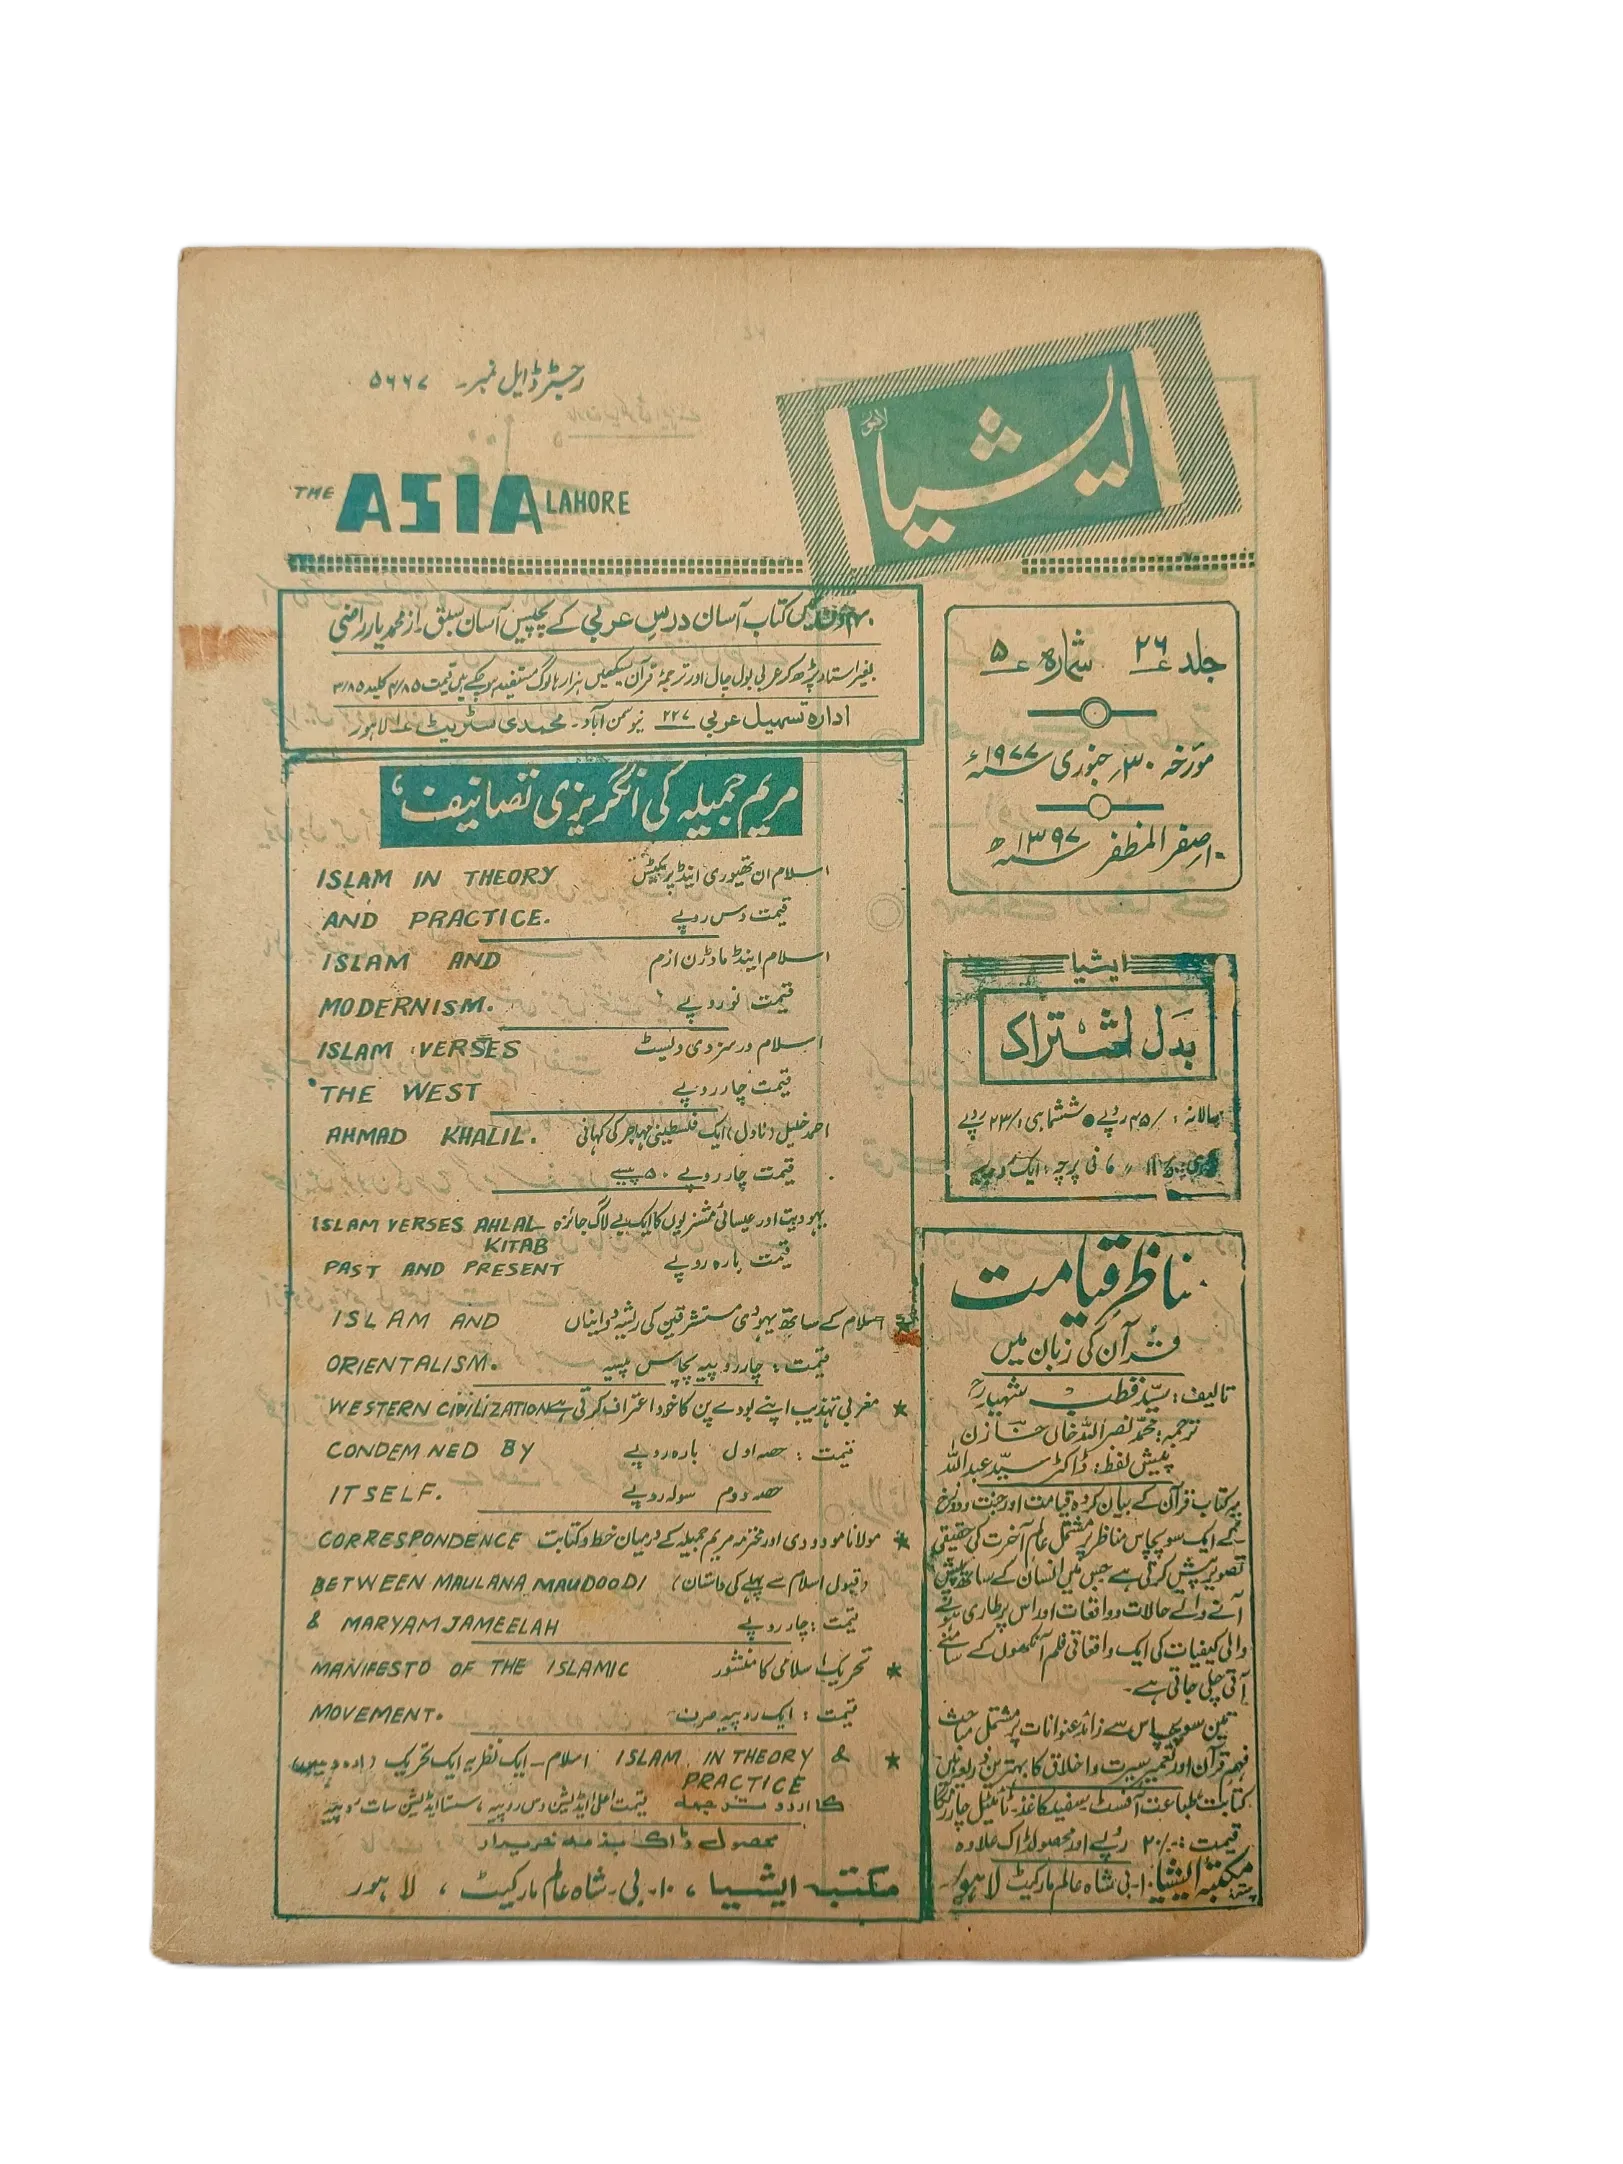 رجسٹرڈ ایل نمبر۔ ۵۶۶۷
ایشیا
لاہور
THE ASIA LAHORE
کتاب آسان درسِ عربی کے پچیس آسان سبق۔ از محمد یار راضی
بغیر استاد پڑھ کر عربی بول چال اور ترجمۂ قرآن سیکھیں ہزارہا لوگ مستفید ہو چکے ہیں قیمت ۴/۸۵ کلید ۳/۸۵
ادارہ تسہیل عربی ۲۲۷ نیو سمن آباد۔ محمدی سٹریٹ لاہور
جلد ۲۶ شمارہ ۵
مورخہ ۳۰؍ جنوری ۱۹۷۷ء
۱۰ صفر المظفر ۱۳۹۷ھ
مریم جمیلہ کی انگریزی تصانیف
ISLAM IN THEORY اسلام ان تھیوری اینڈ پریکٹس
AND PRACTICE. قیمت دس روپے
ISLAM AND اسلام اینڈ ماڈرن ازم
MODERNISM. قیمت نو روپے
ISLAM VERSES اسلام ورسز دی ویسٹ
THE WEST قیمت چار روپے
AHMAD KHALIL. احمد خلیل (ناول) ایک فلسطینی مہاجر کی کہانی
قیمت چار روپے ۵۰ پیسے
ISLAM VERSES AHLAL یہودیت اور عیسائی مشنریوں کا ایک بے لاگ جائزہ
KITAB
PAST AND PRESENT قیمت بارہ روپے
ISLAM AND اسلام کے ساتھ یہودی مستشرقین کی ریشہ دوانیاں
ORIENTALISM. قیمت: چار روپیہ پچاس پیسہ
WESTERN CIVILIZATION مغربی تہذیب اپنے بودے پن کا خود اعتراف کرتی ہے ★
CONDEMNED BY قیمت: حصہ اول بارہ روپے
ITSELF. حصہ دوم سولہ روپے
CORRESPONDENCE مولانا مودودی اور محترمہ مریم جمیلہ کے درمیان خط و کتابت ★
BETWEEN MAULANA MAUDOODI (قبول اسلام سے پہلے کی داستان)
& MARYAM JAMEELAH قیمت: چار روپے
MANIFESTO OF THE ISLAMIC تحریک اسلامی کا منشور ★
MOVEMENT. قیمت: ایک روپیہ صرف
★ ISLAM IN THEORY & اسلام۔ ایک نظریہ ایک تحریک
PRACTICE
کا اردو ترجمہ قیمت اعلیٰ ایڈیشن دس روپیہ، سستا ایڈیشن سات روپیہ
محصول ڈاک بذمہ خریدار
مکتبہ ایشیا، ۱۰۔ بی۔ شاہ عالم مارکیٹ، لاہور
ایشیا
بدَل اشتراک
سالانہ: ۴۵/ روپے ● ششماہی: ۲۳/ روپے
فی پرچہ: ایک روپیہ
مناظرِ قیامت
قرآن کی زبان میں
تالیف: سیّد قطب شہیدؒ
ترجمہ: محمد نصر اللہ خاں خازن
پیش لفظ: ڈاکٹر سیّد عبداللہ
یہ کتاب قرآن کے بیان کردہ قیامت اور جنت و دوزخ
کے ایک سو پچاس مناظر پر مشتمل عالم آخرت کی حقیقی
تصویر پیش کرتی ہے جس میں انسان کے ساتھ پیش
آنے والے حالات و واقعات اور اس پر طاری ہونے
والی کیفیات کی ایک واقعاتی فلم آنکھوں کے سامنے
آتی چلی جاتی ہے۔
تین سو پچاس سے زائد عنوانات پر مشتمل مباحث
فہم قرآن اور تعمیر سیرت و اخلاق کا بہترین ذریعہ ہیں
کتابت طباعت آفسٹ۔ سفید کاغذ۔ ٹائٹل چار رنگا
قیمت: ۲۰/۰۰ روپے اور محصول ڈاک علاوہ
پتہ: مکتبہ ایشیا ۱۰۔ بی شاہ عالم مارکیٹ لاہور